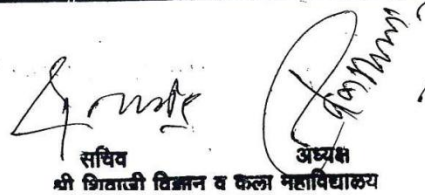 सचिव अध्यक्ष
श्री शिवाजी विज्ञान व कला महाविद्यालय